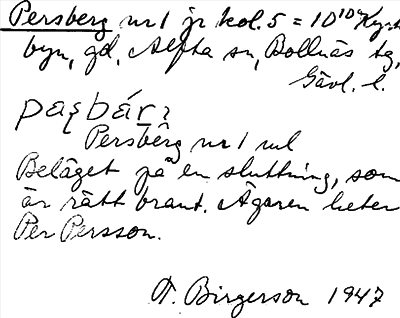 Persberg nr 1 jr kol. 5 = 10 Kyrk
byn, gd, Alfta sn, Bollnäs tg,
Gävl. l.
Persberg nr 1 ml
Beläget på en sluttning, som
är rätt brant. Ägaren heter
Per Persson.
F. Birgerson 1947